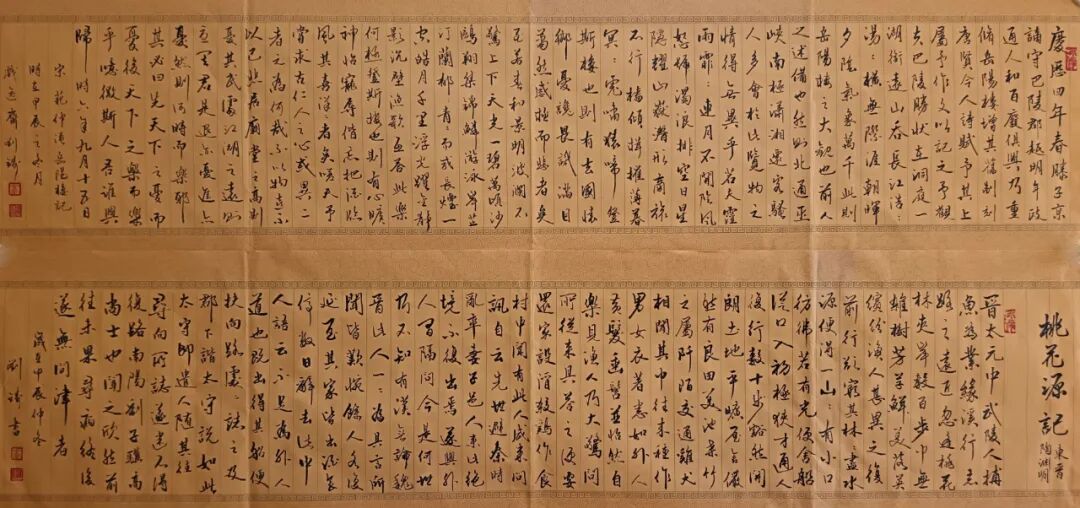 慶曆四年春滕子京
謫守巴陵郡越明年政
通人和百廢俱興乃重
脩岳陽樓增其舊制刻
唐賢今人詩賦于其上
屬予作文以記之予觀
夫巴陵勝狀在洞庭一
湖銜遠山吞長江浩〻
湯〻橫無際涯朝暉
夕陰氣象萬千此則
岳陽樓之大觀也前人
之述備也然則北通巫
峽南極瀟湘遷客騷
人多會於此覽物之
情得無異乎若夫霪
雨霏〻連月不開陰風
怒號濁浪排空日星
隱耀山嶽潛形商旅
不行檣傾楫摧薄暮
冥〻虎嘯猿啼登
斯樓也則有去國懷
鄉憂讒畏譏滿目
蕭然感極而悲者矣
至若春和景明波瀾不
驚上下天光一碧萬頃沙
鷗翔集錦鱗游泳岸芷
汀蘭郁〻青〻而或長煙一
空皓月千里浮光躍金靜
影沉璧漁歌互答此樂
何極登斯樓也則有心曠
神怡寵辱偕忘把酒臨
風其喜洋〻者矣嗟夫予
嘗求古仁人之心或異二
者之為何哉不以物喜不
以己悲居廟堂之高則
憂其民處江湖之遠則
憂其君是進亦憂退亦
憂然則何時而樂耶
其必曰先天下之憂而
憂後天下之樂而樂
乎噫微斯人吾誰與
歸 時六年九月十五日
宋 范仲淹岳陽樓記
時在甲辰之冬月
劉濤
桃花源記
東晉
陶淵明
晉太元中武陵人捕
魚為業緣溪行忘
路之遠近忽逢桃花
林夾岸數百步中無
雜樹芳草鮮美落英
繽紛漁人甚異之復
前行欲窮其林林盡水
源便得一山山有小口
彷彿若有光便舍船
從口入初極狹才通人
復行數十步豁然開
朗土地平曠屋舍儼
然有良田美池桑竹
之屬阡陌交通雞犬
相聞其中往來種作
男女衣著悉如外人
黃髮垂髫並怡然自
樂見漁人乃大驚問
所從來具答之便要
還家設酒殺雞作食
村中聞有此人咸來問
訊自云先世避秦時
亂率妻子邑人來此絕
境不復出焉遂與外
人間隔問今是何世
乃不知有漢無論魏
晉此人一一為具言所
聞皆歎惋餘人各復
延至其家皆出酒食
停數日辭去此中
人語云不足為外人
道也既出得其船便
扶向路處〻誌之及
郡下詣太守說如此
太守即遣人隨其往
尋向所誌遂迷不得
復路南陽劉子驥高
尚士也聞之欣然前
往未果尋病終後
遂無問津者
歲在甲辰仲冬
劉濤書